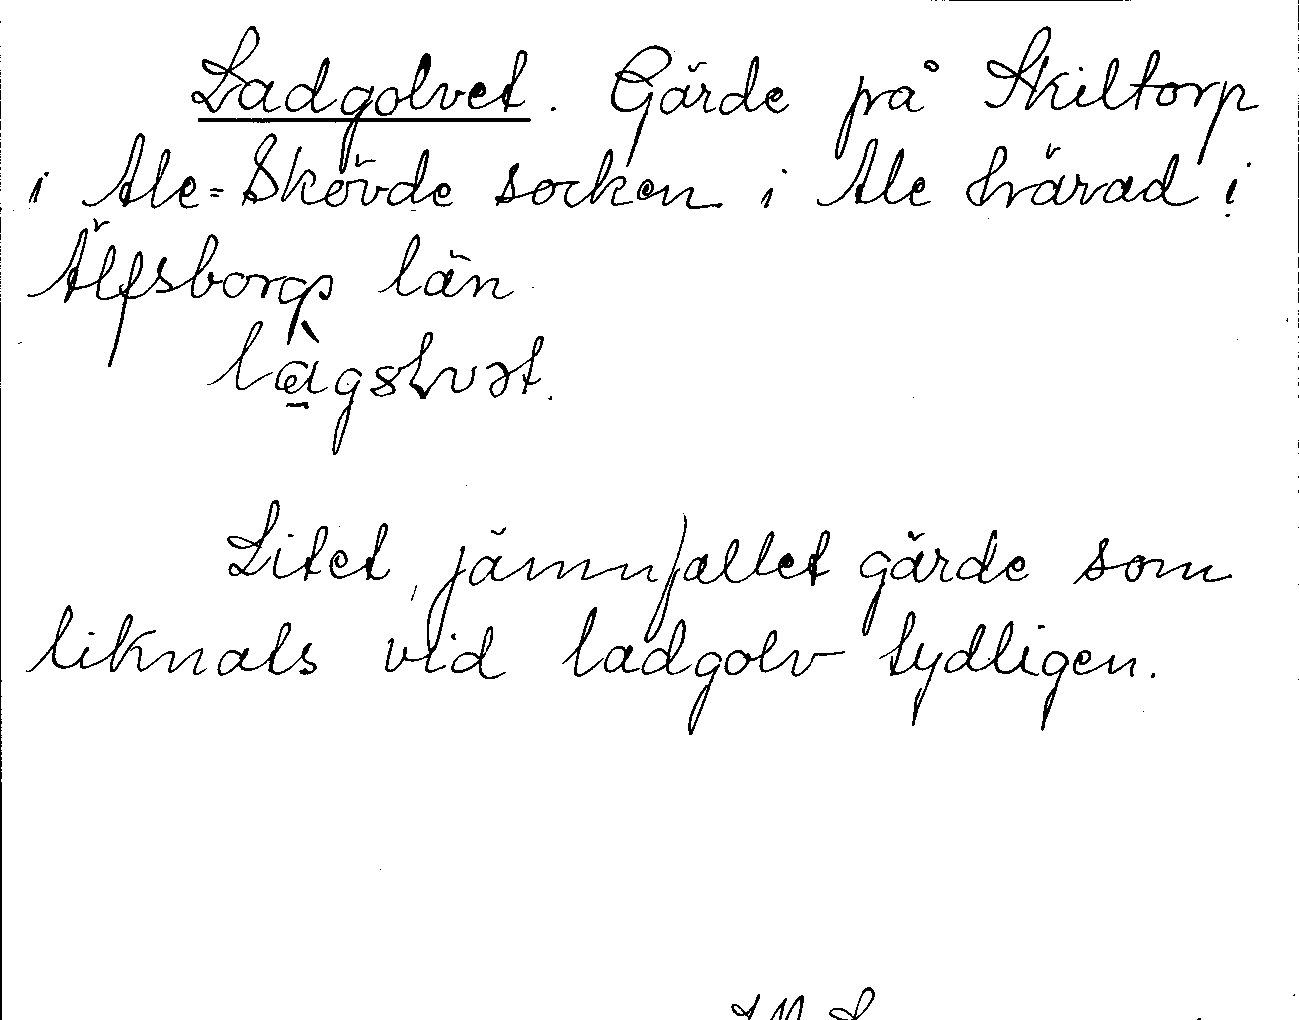 Ladgolvet. Gärde på Skiltorp
i Ale=Skövde socken i Ale härad i
Älfsborgs län
Litet, jämnfallet gärde som
liknats vid ladgolv tydligen.